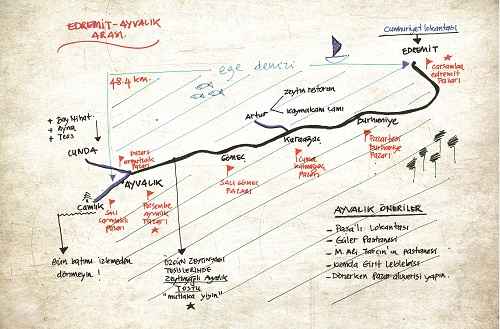 EDREMİT-AYVALIK
ARASI
Cumhuriyet lokantası
EDREMİT
Çarşamba
edremit
Pazarı
48.4 km.
ege denizi
zeytin
Kaymakam Cami
Artur
Burhaniye
Pazartesi
burhaniye
Pazarı
Karaağaç
Cuma
Pazarı
GÖMEÇ
SALI GÖMEÇ
PAZARI
+ Bay Nihat
+ Ayna
+ Teos
CUNDA
Pazarı
AYVALIK
Perşembe
ayvalık
Pazarı
Çamlık
Salı
Pazarı
Gün batımı izlemeden
dönmeyin!
ÖZGÜN ZEYTİNYAĞI
TESİSLERİNDE
Zeytinyağlı Ayvalık
TOSTU
"mutlaka yiyin"
AYVALIK ÖNERİLER
- Paşa'lı Lokantası
- Güler Pastanesi
- M. Ali pastanesi
- Cunda Girit Leblebisi
- Dönerken Pazar alışverişi yapın.